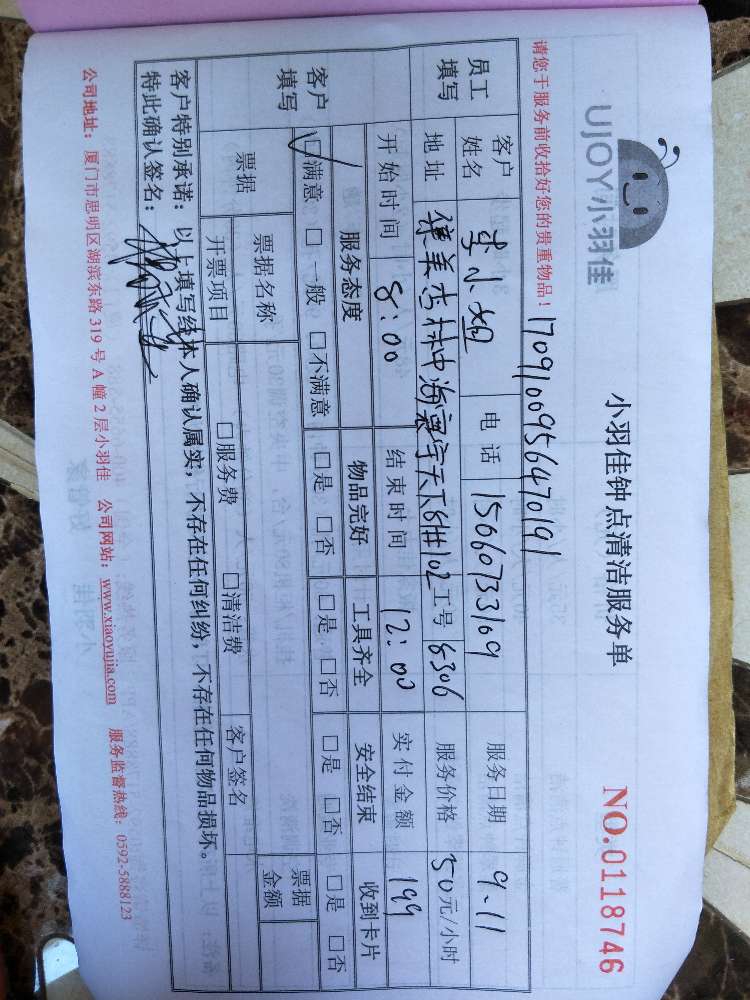 UJOY小羽佳
小羽佳钟点清洁服务单
NO.0118746
请您于服务前收拾好您的贵重物品！ 1709100956470191
员工填写 客户姓名 李小姐 电话 15660733169 服务日期 9.11
地址 集美杏林中海寰宇天下81#102 工号 8306 服务价格 50元/小时
开始时间 8:00 结束时间 12:00 实付金额 199
客户填写 服务态度 物品完好 工具齐全 安全结束 收到卡片
☑满意 □一般 □不满意 □是 □否 □是 □否 □是 □否 □是 □否
票据 票据名称 客户签名 票据金额
开票项目 □服务费 □清洁费
客户特别承诺：以上填写经本人确认属实，不存在任何纠纷，不存在任何物品损坏。
特此确认签名：
公司地址：厦门市思明区湖滨东路 319 号 A 幢 2 层小羽佳 公司网站：www.xiaoyujia.com 服务监督热线：0592-5888123